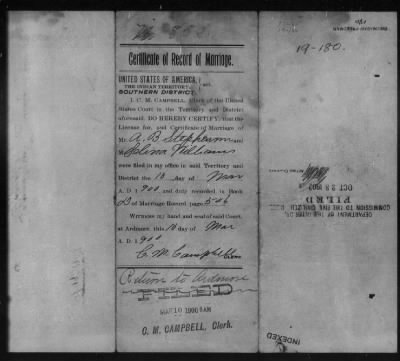 Certificate of Record of Marriage.
UNITED STATES OF AMERICA,
THE INDIAN TERRITORY, sct.
SOUTHERN DISTRICT.
I, C. M. CAMPBELL, Clerk of the United
States Court in the Territory and District
aforesaid, DO HEREBY CERTIFY, that the
License for, and Certificate of Marriage of
Mr. A. B. Stephenson and
Williams
were filed in my office in said Territory and
District the 10 day of Mar
A. D. 1900, and duly recorded in Book
D of Marriage Record page 506
WITNESS my hand and seal of said Court,
at Ardmore, this 10 day of Mar
A. D. 1900
C. M. Campbell
Clerk
Return to Ardmore
FILED
MAR 10 1900 8AM
C. M. CAMPBELL, Clerk.
19-180.
DEPARTMENT OF THE INTERIOR,
COMMISSION TO THE FIVE CIVILIZED
FILED
OCT 28 1902
INDEXED